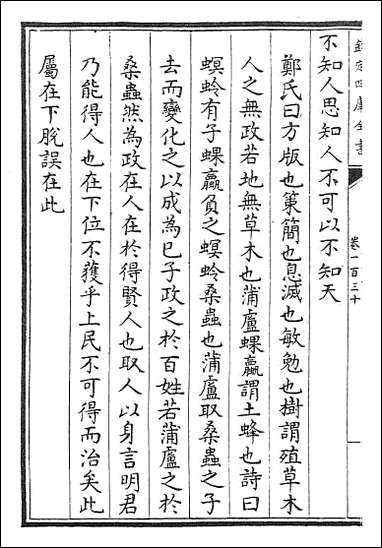 欽定四庫全書
卷一百三十
不知人思知人不可以不知天
鄭氏曰方版也策簡也息滅也敏勉也樹謂殖草木
人之無政若地無草木也蒲盧蜾蠃謂土蜂也詩曰
螟蛉有子蜾蠃負之螟蛉桑蟲也蒲盧取桑蟲之子
去而變化之以成為己子政之於百姓若蒲盧之於
桑蟲然為政在人在於得賢人也取人以身言明君
乃能得人也在下位不獲乎上民不可得而治矣此
屬在下脫誤在此